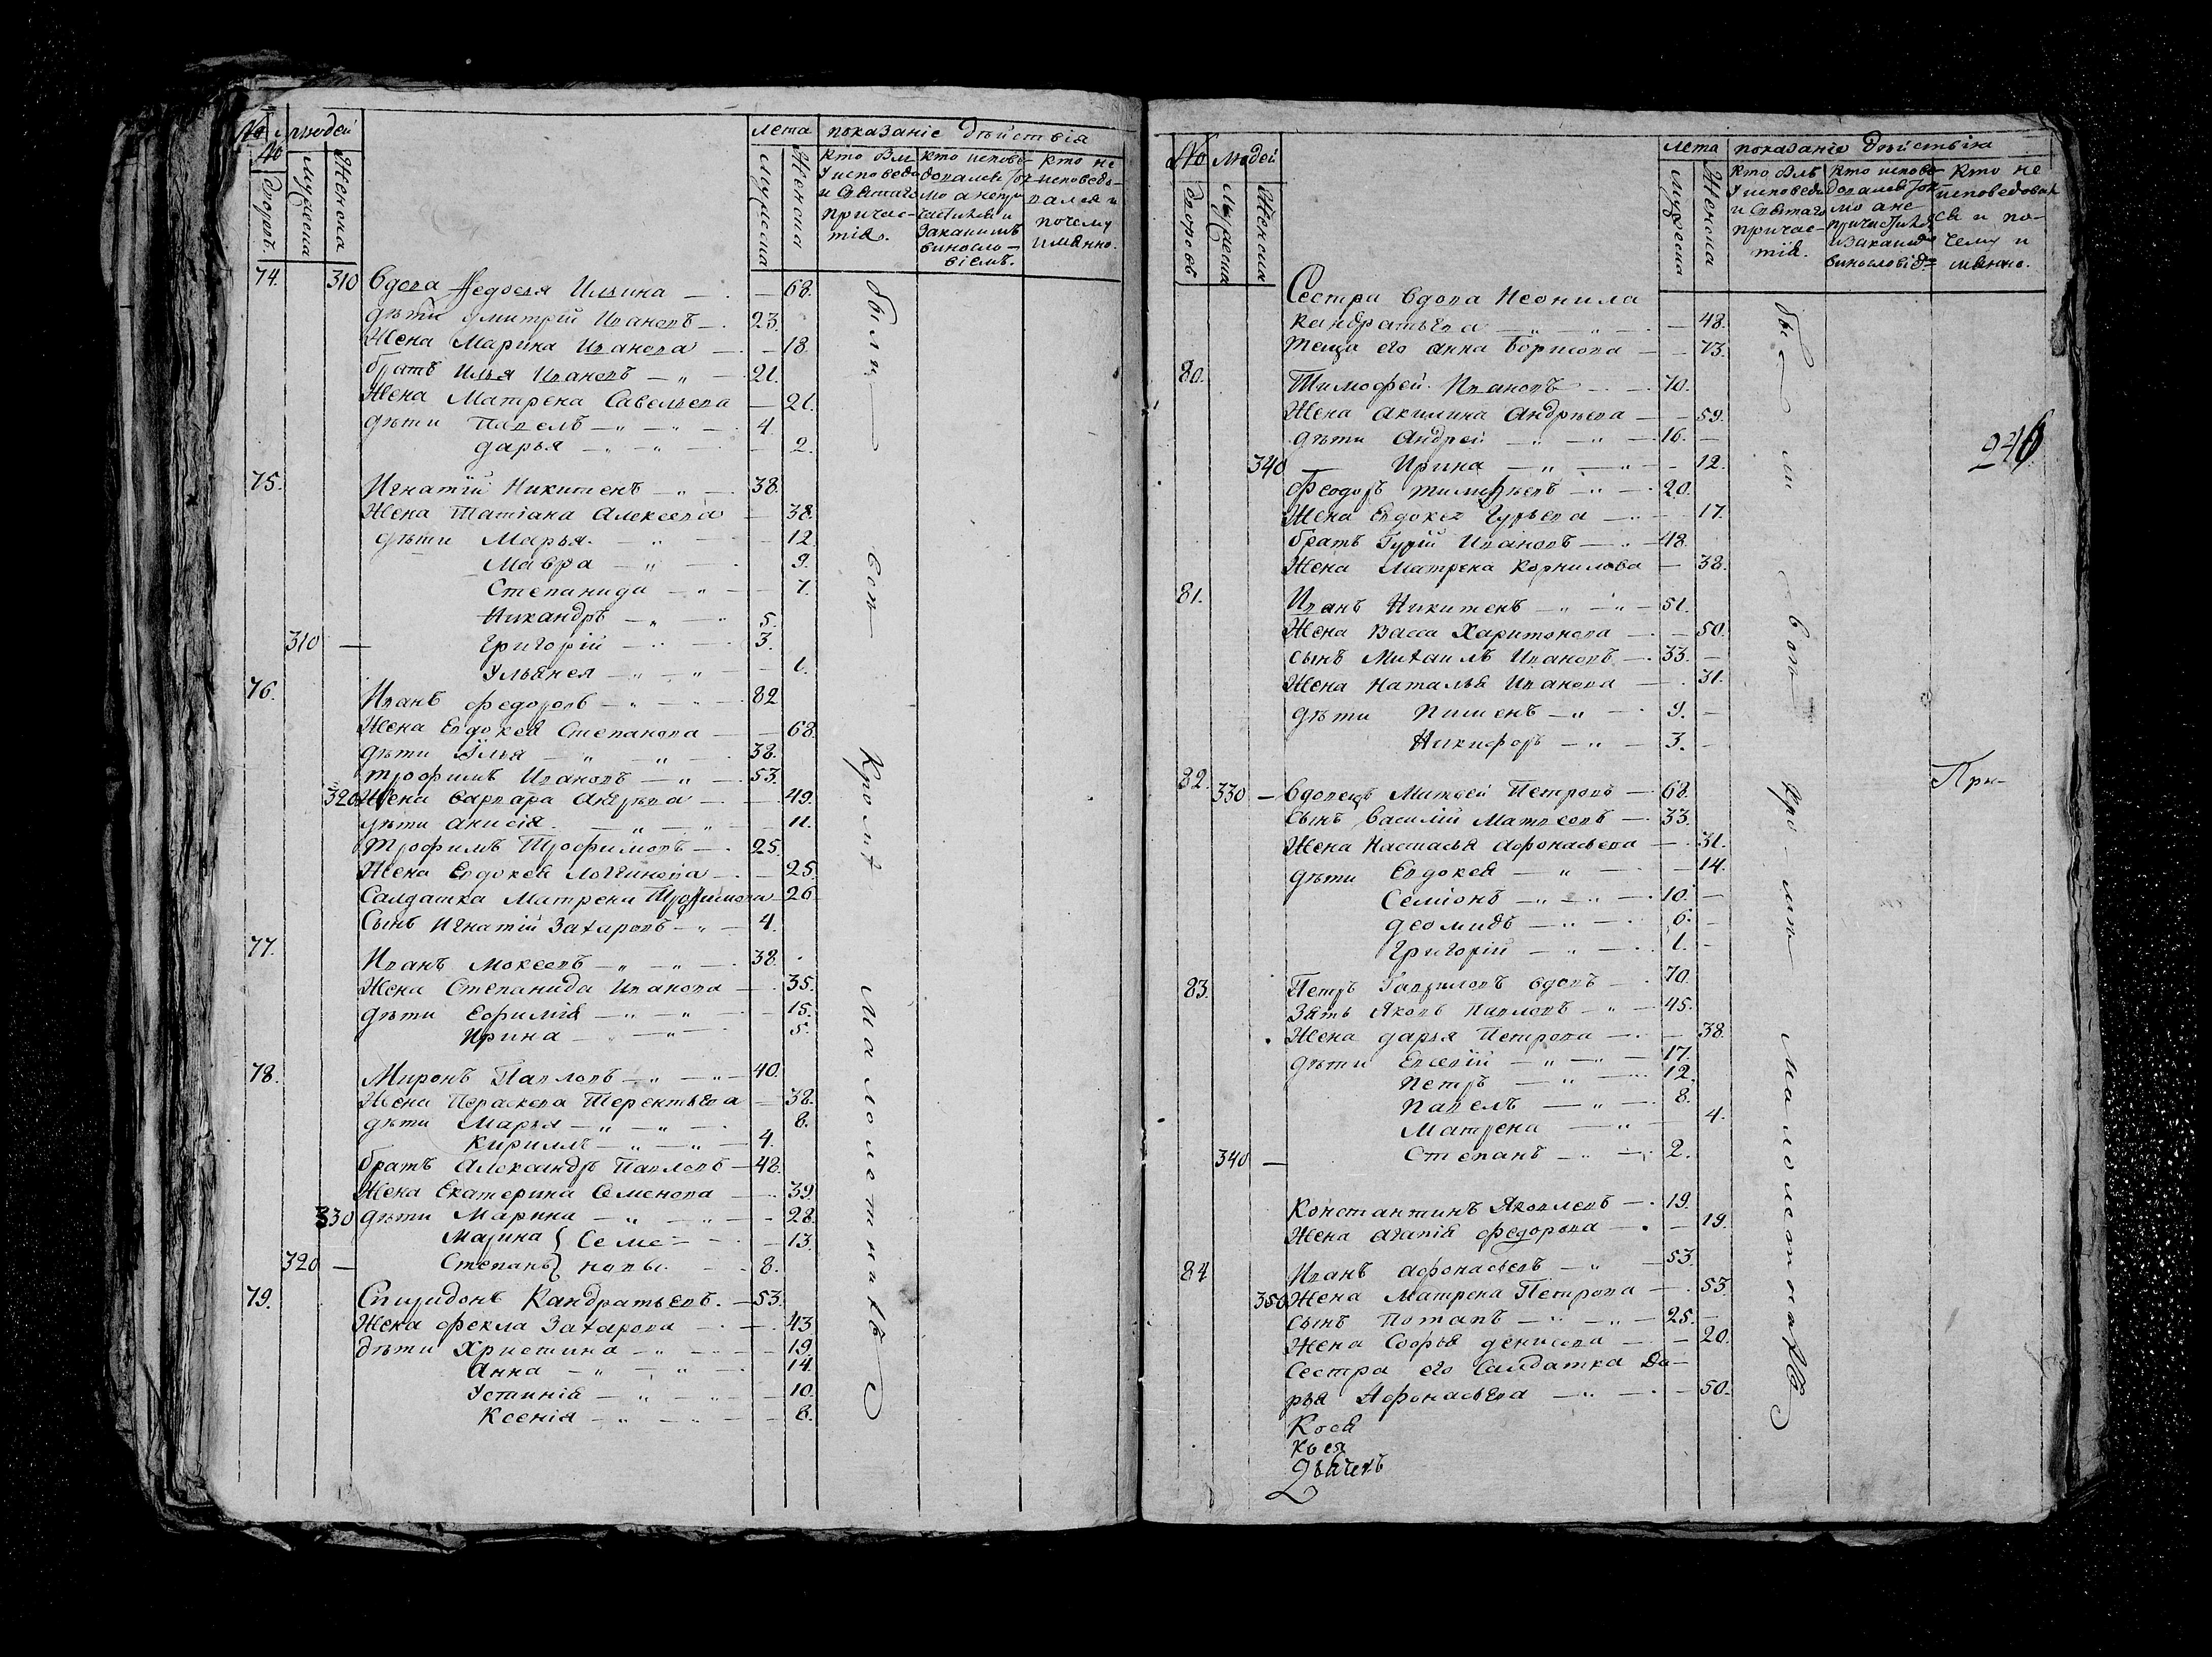 № людей
лета показаніе дѣйствія
№ дворовъ. Мужеска Женска
Мужеска Женска
Кто были У исповеди и Святаго причас-тія.
Кто испове-довался ток-мо а не при-частился и заканимъ винасло-віемъ.
Кто не исповедо-вался и почему именно.
74. 310 Вдова Федосья Ильина — — 68.
дѣти Дмитрій Ивановъ — 23.
Жена Марина Иванова — — 18.
братъ Илья Ивановъ — „ — 21.
Жена Матрена Савельева — 21.
дѣти Павелъ — „ — „ — 4.
дарья — „ — „ — — 2.
75. Игнатій Никитенъ — „ — 38.
Жена Татіана Алексеева — 38.
дѣти Марья — „ — — 12.
Мавра — „ — 9.
Степанида — „ — — 7.
Никандръ — „ — 5.
310 — Григорій — „ — 3.
Ульянея — „ — „ — — 1.
76. Иванъ федоровъ — „ — „ — 82
Жена Евдокея Степанова — — 68.
дѣти Илья — „ — „ — 38.
трофимъ Ивановъ — „ — 53.
320 Жена варвара Андрѣева — — 49.
дѣти анисія — „ — „ — — 11.
Трофимъ Трофимовъ — 25.
Жена Евдокея Логгинова — — 25.
Салдатка Матрена Трофимова — 26
Сынъ Игнатій Захаровъ — „ — 4.
77. Иванъ Мокеевъ — „ — „ — 38.
Жена Степанида Иванова — 35.
дѣти Еофимія — „ — „ — — 15.
Ирина — „ — 5.
78. Миронъ Павловъ — „ — „ — 40.
Жена Параскева Терентьева — 38.
дѣти Марья — „ — „ — 8.
Кириллъ — „ — „ — 4.
братъ Александръ Павловъ — 48.
Жена Екатерина Семенова — 39.
330 дѣти Марина — „ — „ — — 28.
Марина } Семе- — — 13.
320 — Степанъ } новы — 8.
79. Спиридонъ Кандратьевъ. — 53.
Жена фекла Захарова — — 43.
дѣти Христина — „ — — 19.
Анна — „ — „ — 14.
Устинія — „ — „ — — 10.
Ксенія — „ — „ — — 8.
были вси Кромѣ Малолетниковъ
№ людей
лета показаніе дѣйствія
дворовъ Мужеска Женска
Мужеска Женска
Кто былъ У исповеди и Святаго причас-тія.
Кто испове-довался ток-мо а не причастился
Кто не исповедовал-ся и по-чему и-менно.
Сестра вдова Неонила
Кандратьева — „ — „ — — 48.
теща его анна борисова — — 73.
80. Тимофей Ивановъ — 70.
Жена акилина Андрѣева — — 59.
дѣти Андрей — „ — „ — 16. —
340 — Ирина — „ — „ — — 12.
Феодоръ тимофѣевъ — „ — 20.
Жена Евдокея Гурьева — — 17.
братъ Гурій Ивановъ — 48.
Жена Матрена Корнилова — 38.
81. Иванъ Никитенъ — „ — „ — 51.
Жена Васса Харитонова — — 50.
сынъ Михаилъ Ивановъ — 33. —
Жена Наталья Иванова — 31.
дѣти Пименъ — „ — 9. —
Никифоръ — „ — 3. —
82. 330 — вдовецъ Матвей Петровъ — 68.
Сынъ Василій Матвеевъ — 33.
Жена Настасья Афонасьева — 31.
дѣти Евдокея — „ — — 14.
Семіонъ — „ — „ — 10. —
деомидъ — „ — 6. —
Григорій — „ — 1. —
83. Петръ Гавриловъ вдовъ — 70.
Зять Яковъ Павловъ — „ — 45.
Жена дарья Петрова — — 38.
дѣти Евсевій — „ — „ — 17.
Петръ — „ — 12.
Павелъ — „ — 8.
Матрена — „ — 4.
340 — Степанъ — „ — 2.
Константинъ Яковлевъ — 19.
Жена агапія федорова — — 19.
84 Иванъ афонасьевъ — „ — 53.
350 Жена Матрена Петрова — 53.
сынъ Потапъ — „ — „ — 25. —
Жена Софья денисова — — 20.
Сестра его Салдатка Да-
рья Афонасьева — „ — — 50.
были вси Кро-мѣ Малолетниковъ
246
При-